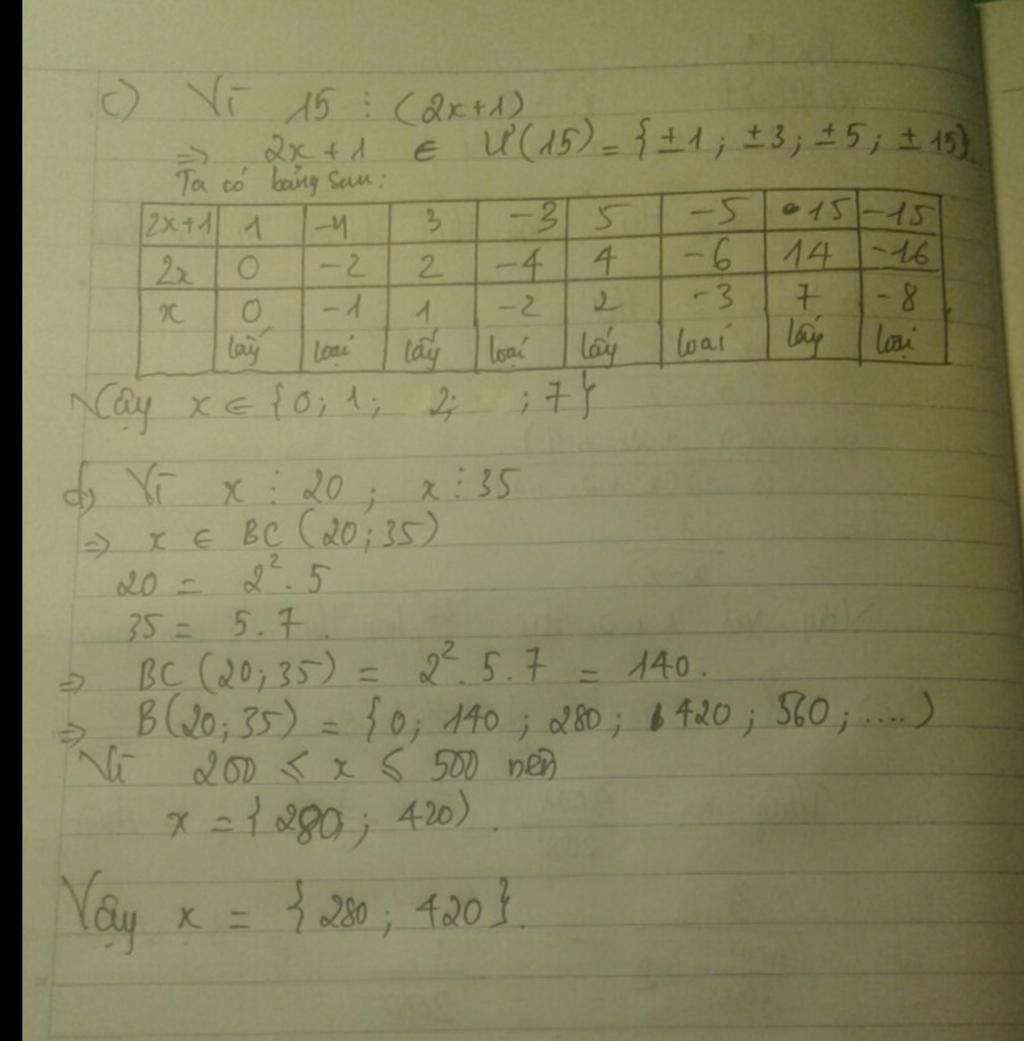 c) Vì 15 ⋮ (2x+1)
=> 2x+1 ∈ Ư(15) = {±1; ±3; ±5; ±15}
Ta có bảng sau:
2x+1 1 -1 3 -3 5 -5 15 -15
2x 0 -2 2 -4 4 -6 14 -16
x 0 -1 1 -2 2 -3 7 -8
lấy loại lấy loại lấy loại lấy loại
Vậy x ∈ {0; 1; 2; ; 7}
d) Vì x ⋮ 20; x ⋮ 35
=> x ∈ BC(20; 35)
20 = 2². 5
35 = 5. 7.
=> BC(20; 35) = 2². 5. 7 = 140.
=> B(20; 35) = {0; 140; 280; 420; 560; ....)
Vì 200 ≤ x ≤ 500 nên
x = {280; 420).
Vậy x = {280; 420}.